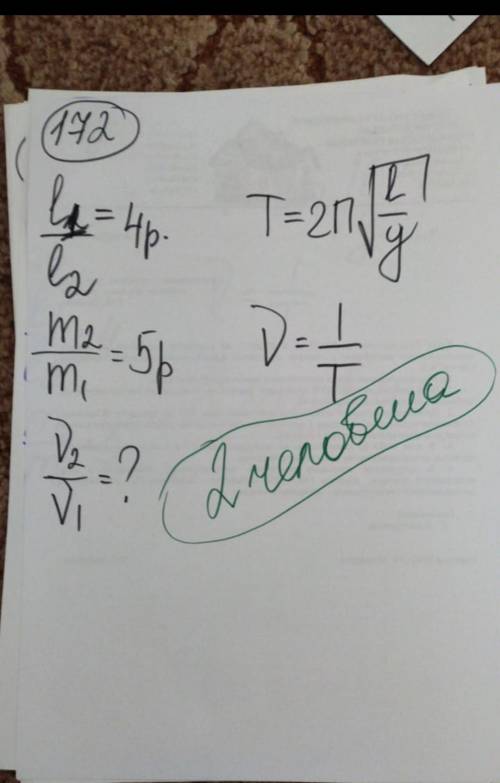 172
l₁/l₂ = 4р.
T = 2П√(l/g)
m₂/m₁ = 5р
ν = 1/T
ν₂/ν₁ = ?
2 человека